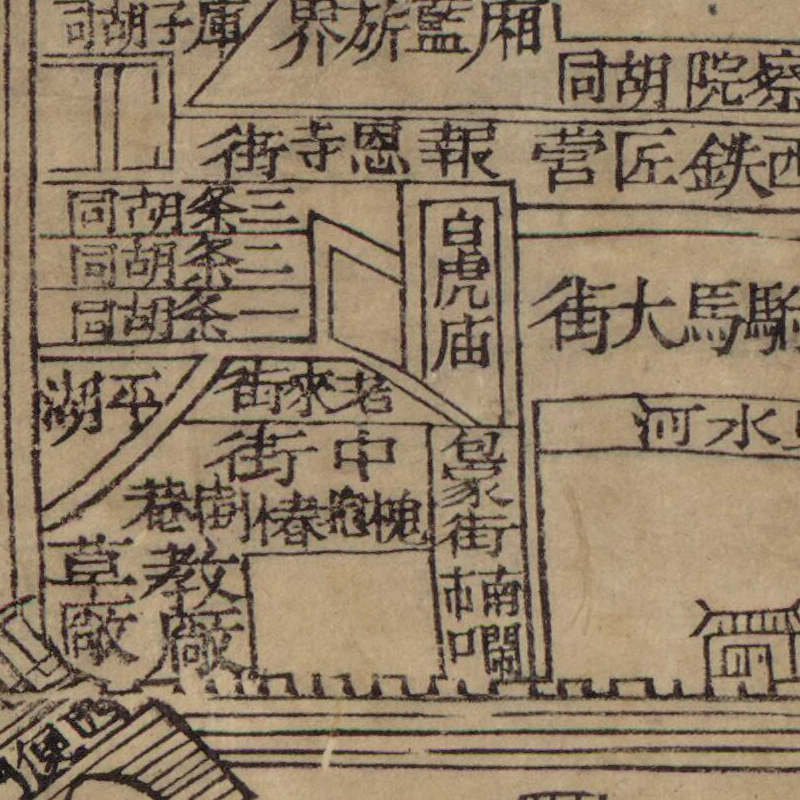 廂藍旂界
庫子胡同
察院胡同
西鉄匠营
報恩寺街
三条胡同
二条胡同
一条胡同
白虎庙
駙馬大街
老來街
平湖
水河
中街
槐抱椿樹
街
南鬧市口
教廠
草廠
西便門